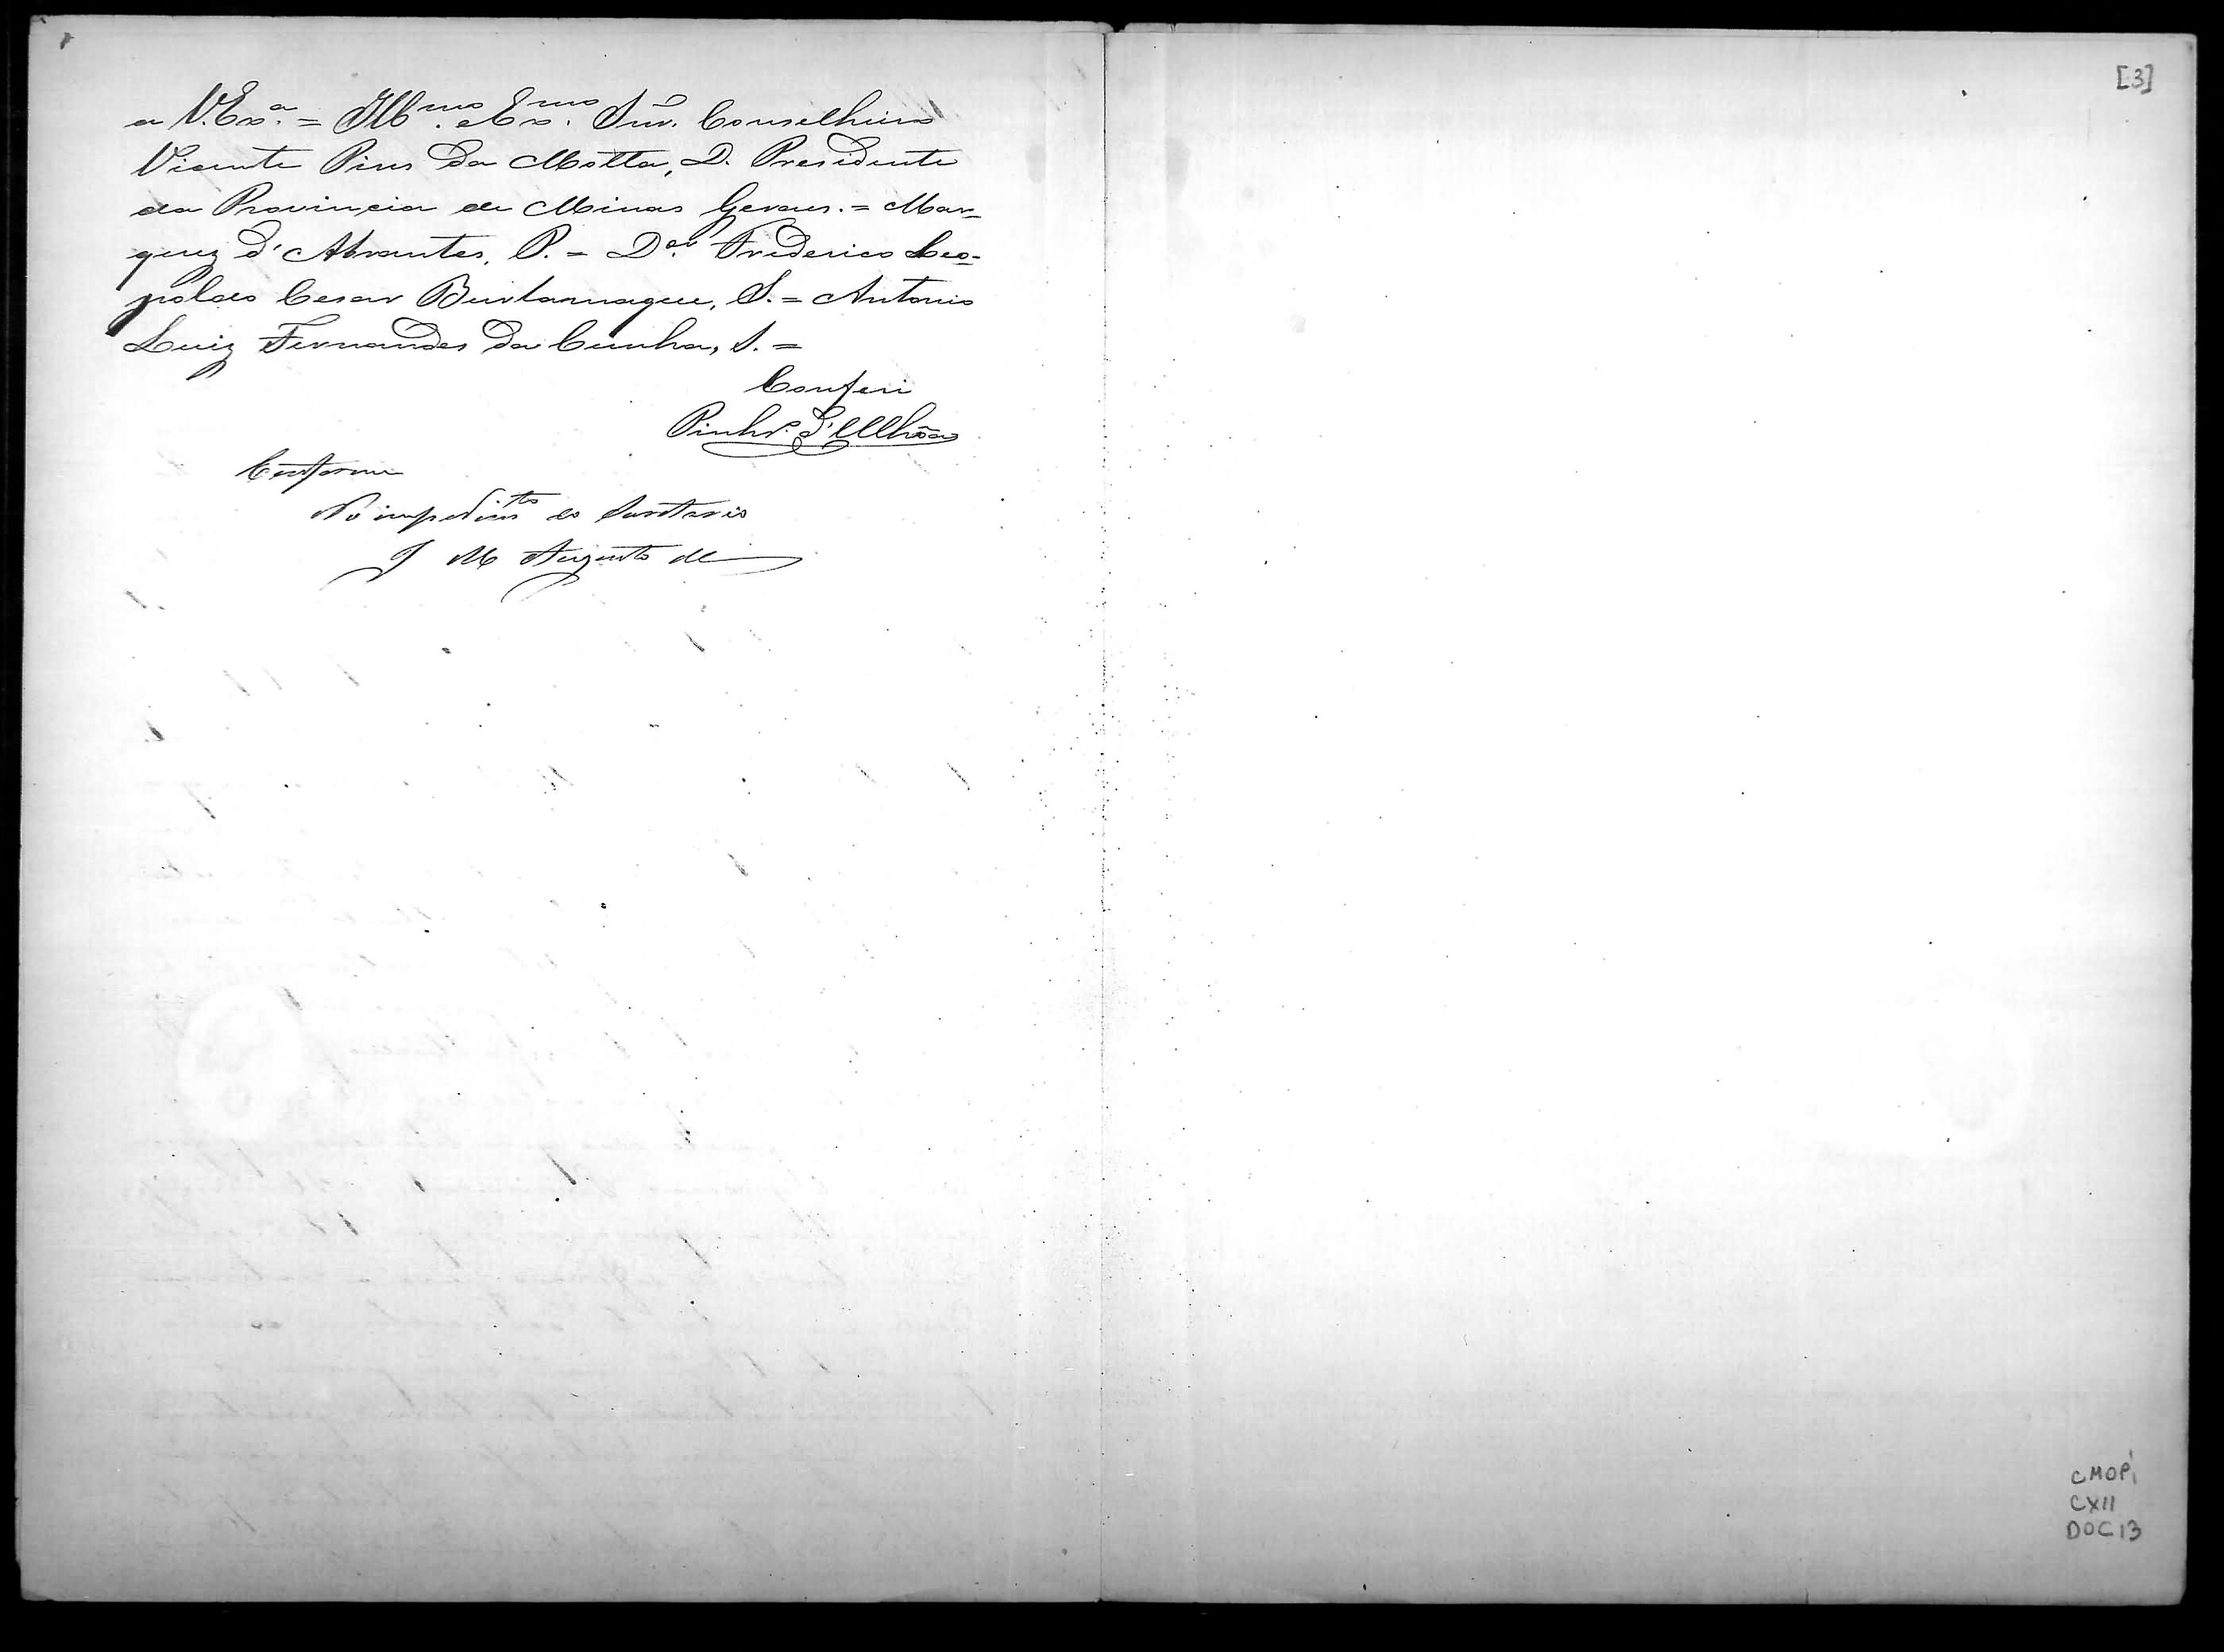 a V. Exª. = Illmo. e Exmo. Snr. Conselheiro
Vicente Pires da Motta, D. Presidente
da Provincia de Minas Geraes. = Mar=
quez d'Abrantes, P. = Dor. Frederico Leo-
poldo Cesar Burlamaque, S. = Antonio
Luiz Fernandes da Cunha, S. =
Conferi
Pinhº. d'Ulhôa
Conforme
No impedimto do Secretario
J M Augusto de
[3]
CMOP
CXII
DOC 13